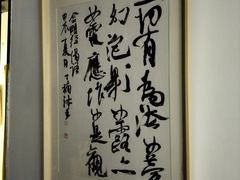 一切有為法如夢
幻泡影如露亦
如電應作如是觀
金剛經偈語
夏日